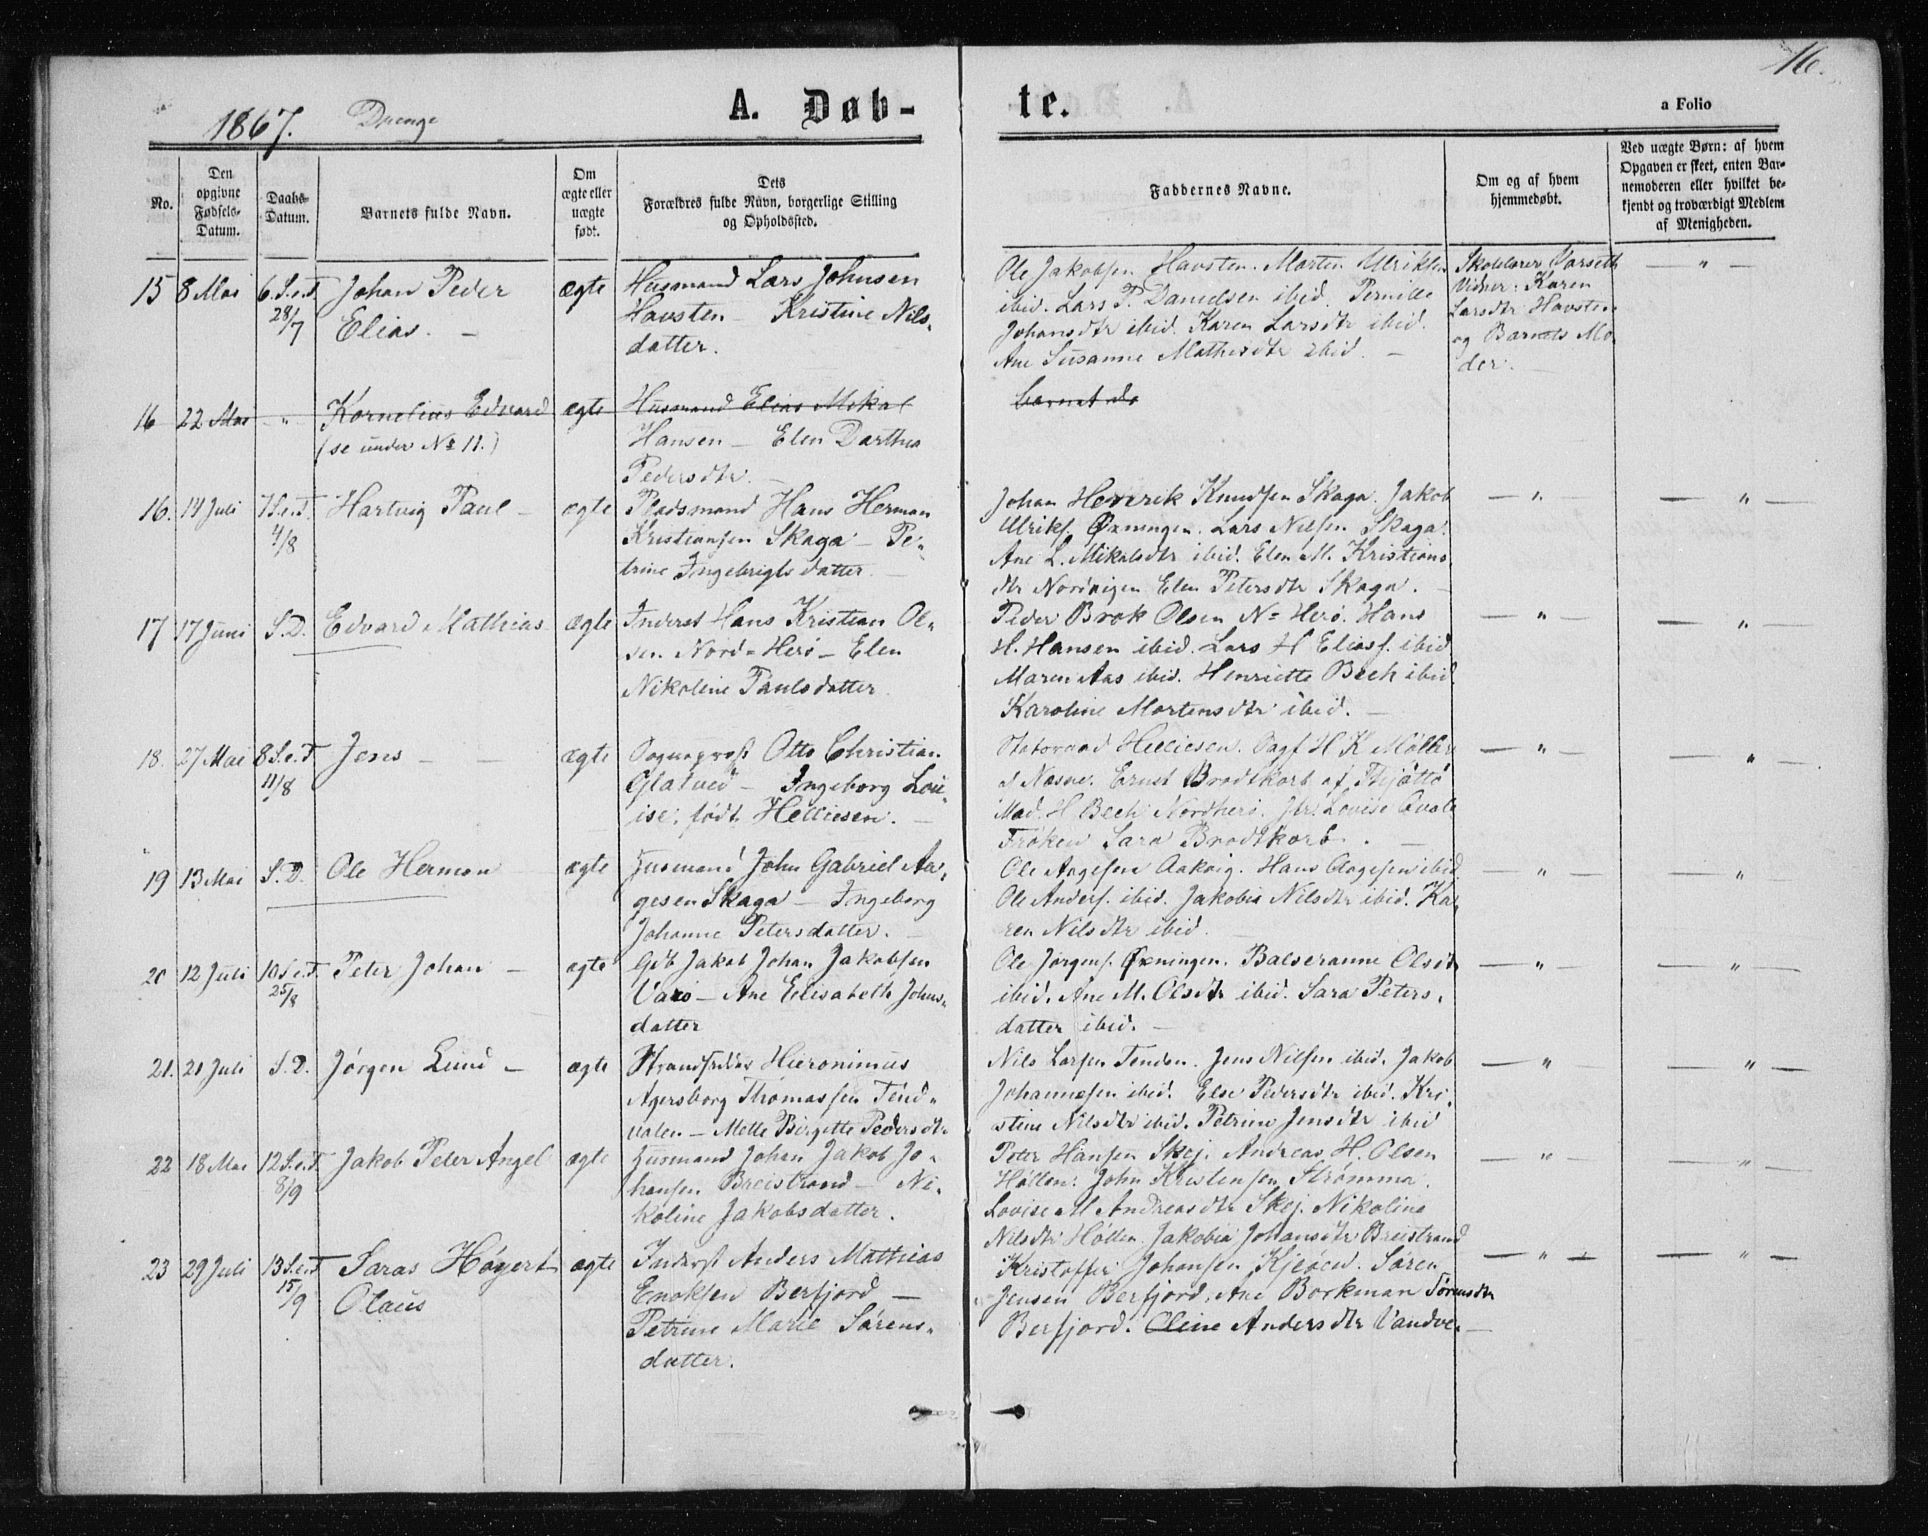 16.
1867. Drenge A. Døb- te. a Folio
No.
Den opgivne Fødsels-Datum.
Daabs-Datum.
Barnets fulde Navn.
Om ægte eller uægte født.
Dets Forældres fulde Navn, borgerlige Stilling og Opholdssted.
Faddernes Navne.
Om og af hvem hjemmedøbt.
Ved uægte Børn: af hvem Opgaven er skeet, enten Barnemoderen eller hvilket bekjendt og troværdigt Medlem af Menigheden.
15 8 Mai 6. S.e.T. 28/7 Johan Peder
Elias. —
ægte
Husmand Lars Johnsen
Havsten — Kristine Nils-
datter.
Ole Jakobsen Havsten. Morten Ulriksen
ibid. Lars P. Danielsen ibid. Pernille
Johansdtr ibid. Karen Larsdtr ibid.
Ane Susanne Mathisdtr ibid. —
Skolelærer Varseth
Vidner: Karen
Larsdtr Havsten
og Barnets Mo-
der.
— " —
16 22 Mai " Kornelius Edvard
(se under No 11.)
ægte
Husmand Elias Mikal
Hansen — Elen Darthea
Pedersdtr. —
barnet do
16. 14 Juli 7 S.e.T. 4/8 Hartvig Paul —
ægte
Pladsmand Hans Herman
Kristiansen Skaga — Pe-
trine Ingebrigtsdatter. —
Johan Henrik Knudsen Skaga. Jakob
Ulriks. Øxningen. Lars Nilsen Skaga.
Ane L. Mikalsdtr ibid. Elen M. Kristians
dtr Nordvigen Elen Petersdtr Skaga. —
— " — — " —
17 17 Juni S.D. Edvard Mathias
ægte
Inderst Hans Kristian Ol-
sen Nord-Herø — Elen
Nikoline Paulsdatter.
Peder Brok Olsen N= Herø. Hans
H. Hansen ibid. Lars H Eliass. ibid
Maren Aas ibid. Henriette Bech ibid.
Karoline Mortensdtr ibid. —
— " — — " —
18. 27 Mai 8 S.e.T 11/8 Jens — —
ægte
Sogneprest Otto Christian
Glatved — Ingeborg Lou-
ise, født Helliesen. —
Helliesen. H K Møller
Nasne. Ernst Brodtkorb af Thjøttø
Mad. H Bech Nordherø. Louise Qvale
Frøken Sara Brodtkorb. —
— " — — " —
19 13 Mai S.D. Ole Herman
ægte
Husmand John Gabriel Aa-
gesen Skaga — Ingeborg
Johanne Petersdatter. —
Ole Aagesen Aakvig. Hans Aagesen ibid.
Ole Anders. ibid. Jakobia Nilsdtr ibid. Ka-
ren Nilsdtr ibid. —
— " — — " —
20 12 Juli 10 S.e.T. 25/8 Peter Johan —
ægte
Gdb Jakob Johan Jakobsen
Vaxø — Ane Elisabeth Johns-
datter
Ole Jørgens. Øxningen. Balseranne Olsdtr
ibid. Ane M. Olsdtr ibid. Sara Peters-
datter ibid. —
— " — — " —
21. 21 Juli S.D. Jørgen Lund —
ægte
Strandsidder Hieronimus
Agersborg Thomassen Tend-
valen — Mette Birgitte Pedersdtr
Nils Larsen Tenden. Jens Nilsen ibid. Jakob
Johannesen ibid. Else Pedersdtr ibid. Kri-
stine Nilsdtr ibid. Petrine Jensdtr ibid
— " — — " —
22 18 Mai 12 S.e.T. 8/9 Jakob Peter Angel
ægte
Husmand Johan Jakob Jo-
hansen Breistrand — Ni-
koline Jakobsdatter.
Peter Hansen Skej. Andreas H. Olsen
Høllen. John Kristensen Strømma.
Lovise M Andreasdtr Skej. Nikoline
Nilsdtr Høllen. Jakobia Johansdtr Breistrand
— " — — " —
23 29 Juli 13 S.e.T 15/9 Saras Høgert
Olaus
ægte
Inderst Anders Mathias
Enoksen Berfjord —
Petrine Marie Sørens-
datter.
Kristoffer Johansen Kjeøen. Søren
Jensen Berfjord. Ane Borkman Sørensdtr
Berfjord. Oline Andersdtr Vandve. —
— " — — " —